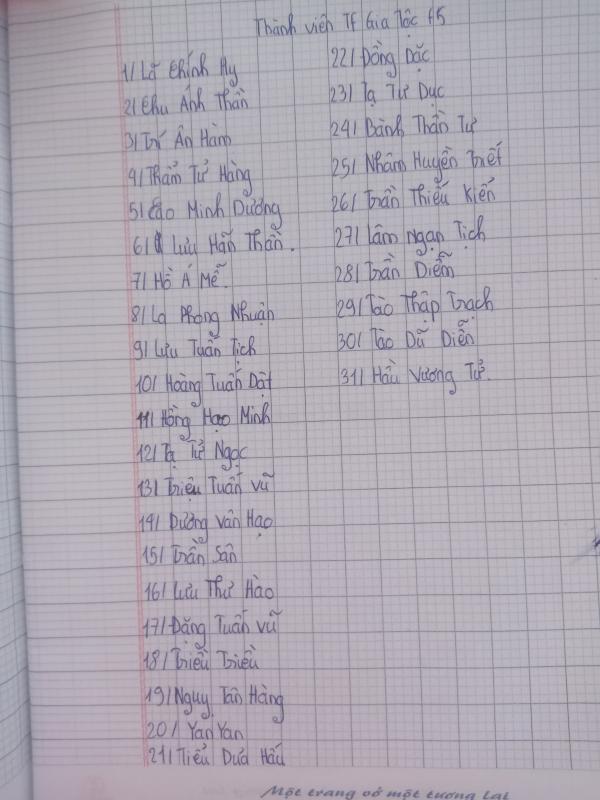 Thành viên TF Gia Tộc F5
1/ Lã Chính Hy
2/ Chu Ánh Thần
3/ Trí Ân Hàm
4/ Thẩm Tử Hàng
5/ Cao Minh Dương
6/ Lưu Hãn Thần.
7/ Hồ Á Mễ.
8/ La Phong Nhuận
9/ Lưu Tuấn Tịch
10/ Hoàng Tuấn Dật
11/ Hồng Hạo Minh
12/ Tạ Tử Ngọc
13/ Triệu Tuấn Vũ
14/ Dương Văn Hạo
15/ Trần Sân
16/ Lưu Thư Hào
17/ Đặng Tuấn Vũ
18/ Triều Triều
19/ Nguỵ Tân Hàng
20/ Yan Yan
21/ Tiểu Dưa Hấu
22/ Đồng Dặc
23/ Tạ Tư Dục
24/ Bành Thần Tư
25/ Nhâm Huyền Triết
26/ Trần Thiếu Kiến
27/ Lâm Ngạn Tịch
28/ Trần Diễm
29/ Tào Thập Trạch
30/ Tào Dữ Diễn
31/ Hầu Vương Tử.
Một trang vở một tương lai